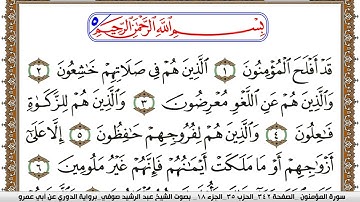 بِسْمِ اللَّهِ الرَّحْمَٰنِ الرَّحِيمِ
قَدْ أَفْلَحَ الْمُؤْمِنُونَ ١ الَّذِينَ هُمْ فِي صَلَاتِهِمْ خَاشِعُونَ ٢
وَالَّذِينَ هُمْ عَنِ اللَّغْوِ مُعْرِضُونَ ٣ وَالَّذِينَ هُمْ لِلزَّكَوٰةِ
فَاعِلُونَ ٤ وَالَّذِينَ هُمْ لِفُرُوجِهِمْ حَافِظُونَ ٥ إِلَّا عَلَىٰ
أَزْوَاجِهِمْ أَوْ مَا مَلَكَتْ أَيْمَانُهُمْ فَإِنَّهُمْ غَيْرُ مَلُومِينَ ٦
سورة المؤمنون _ الصفحة ٣٤٢ _ الحزب ٣٥ _ الجزء ١٨ _ بصوت الشيخ عبد الرشيد صوفي _ برواية الدوري عن أبي عمرو